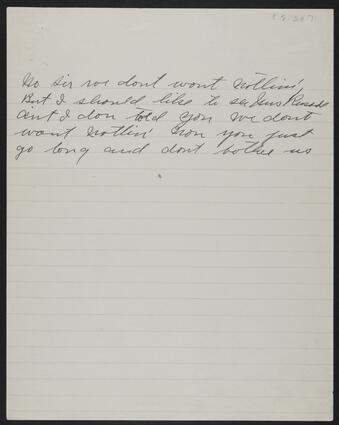 No sir we dont want Nothin'
But I should like to see Miss Russell
Aint I don told you we dont
want Nothin' Now you just
go long and dont bother us